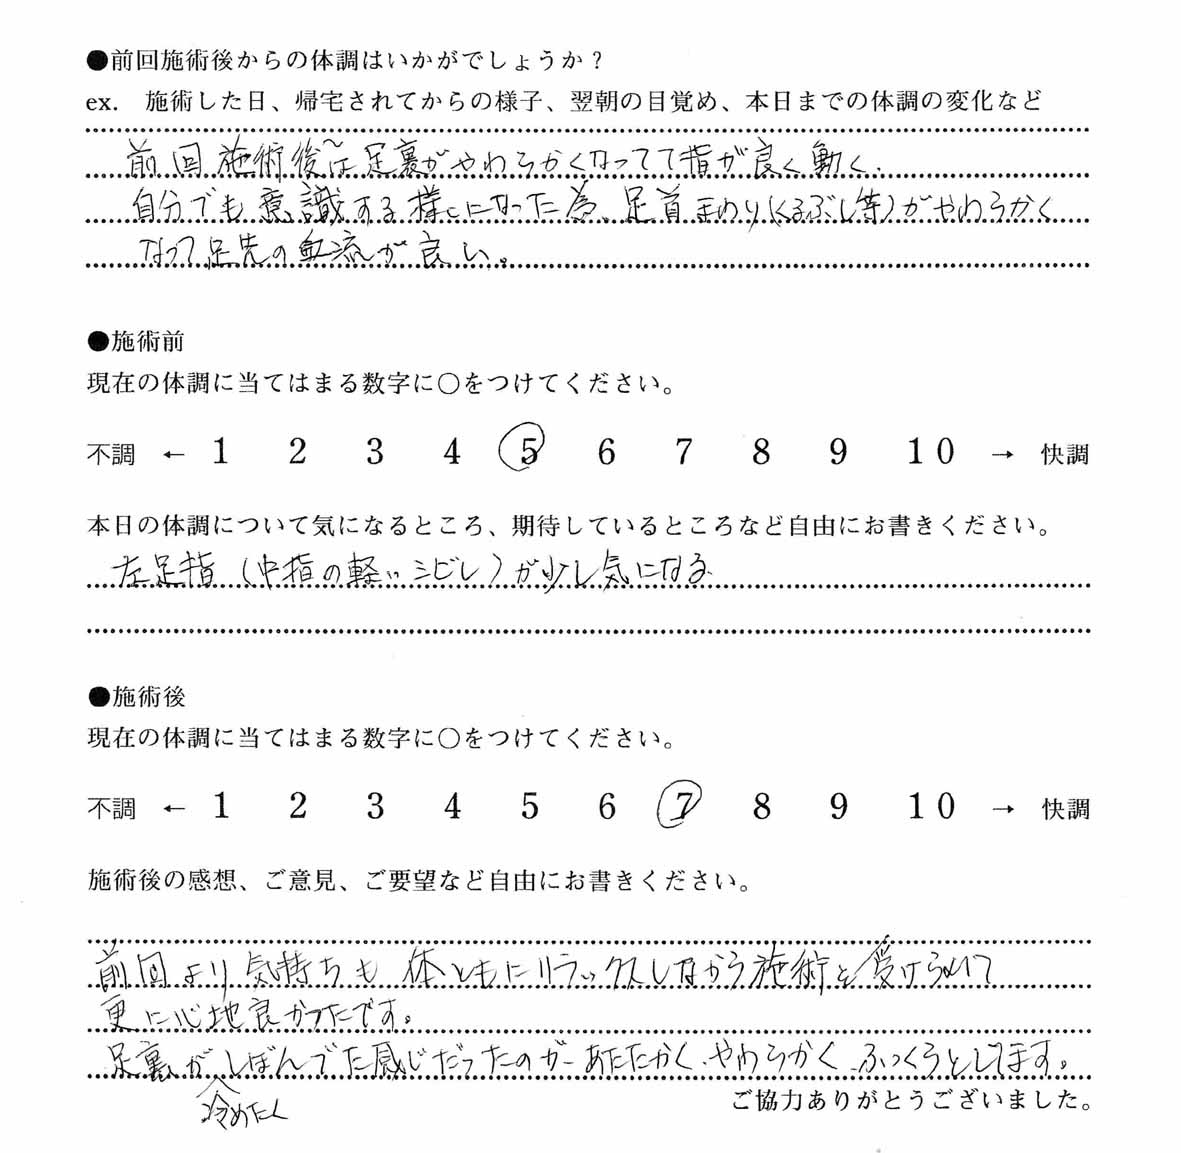 ●前回施術後からの体調はいかがでしょうか？
ex.　施術した日、帰宅されてからの様子、翌朝の目覚め、本日までの体調の変化など
前回施術後〜は足裏がやわらかくなってて指が良く動く、
自分でも意識する様になった為、足首まわり（くるぶし等）がやわらかく
なって足先の血流が良い。
●施術前
現在の体調に当てはまる数字に○をつけてください。
不調 ← 1 2 3 4 5 6 7 8 9 10 → 快調
本日の体調について気になるところ、期待しているところなど自由にお書きください。
左足指（中指の軽いシビレ）が少し気になる
●施術後
現在の体調に当てはまる数字に○をつけてください。
不調 ← 1 2 3 4 5 6 7 8 9 10 → 快調
施術後の感想、ご意見、ご要望など自由にお書きください。
前回より気持ちも体ともにリラックスしながら施術を受けられて
更に心地良かったです。
足裏がしぼんでた感じだったのが、あたたかく、やわらかく、ふっくらとしてます。
冷めたく
ご協力ありがとうございました。